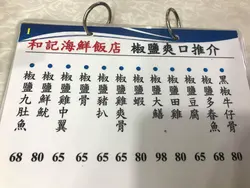 1
和記海鮮飯店 椒鹽爽口推介
椒鹽九肚魚
68
椒鹽鮮魷
80
椒鹽雞中翼
65
椒鹽雞骨
65
椒鹽豬扒
65
椒鹽雞爽骨
65
椒鹽蝦
80
椒鹽大鱔
98
椒鹽田雞
80
椒鹽豆腐
椒鹽多春魚
80
黑椒牛仔骨
80